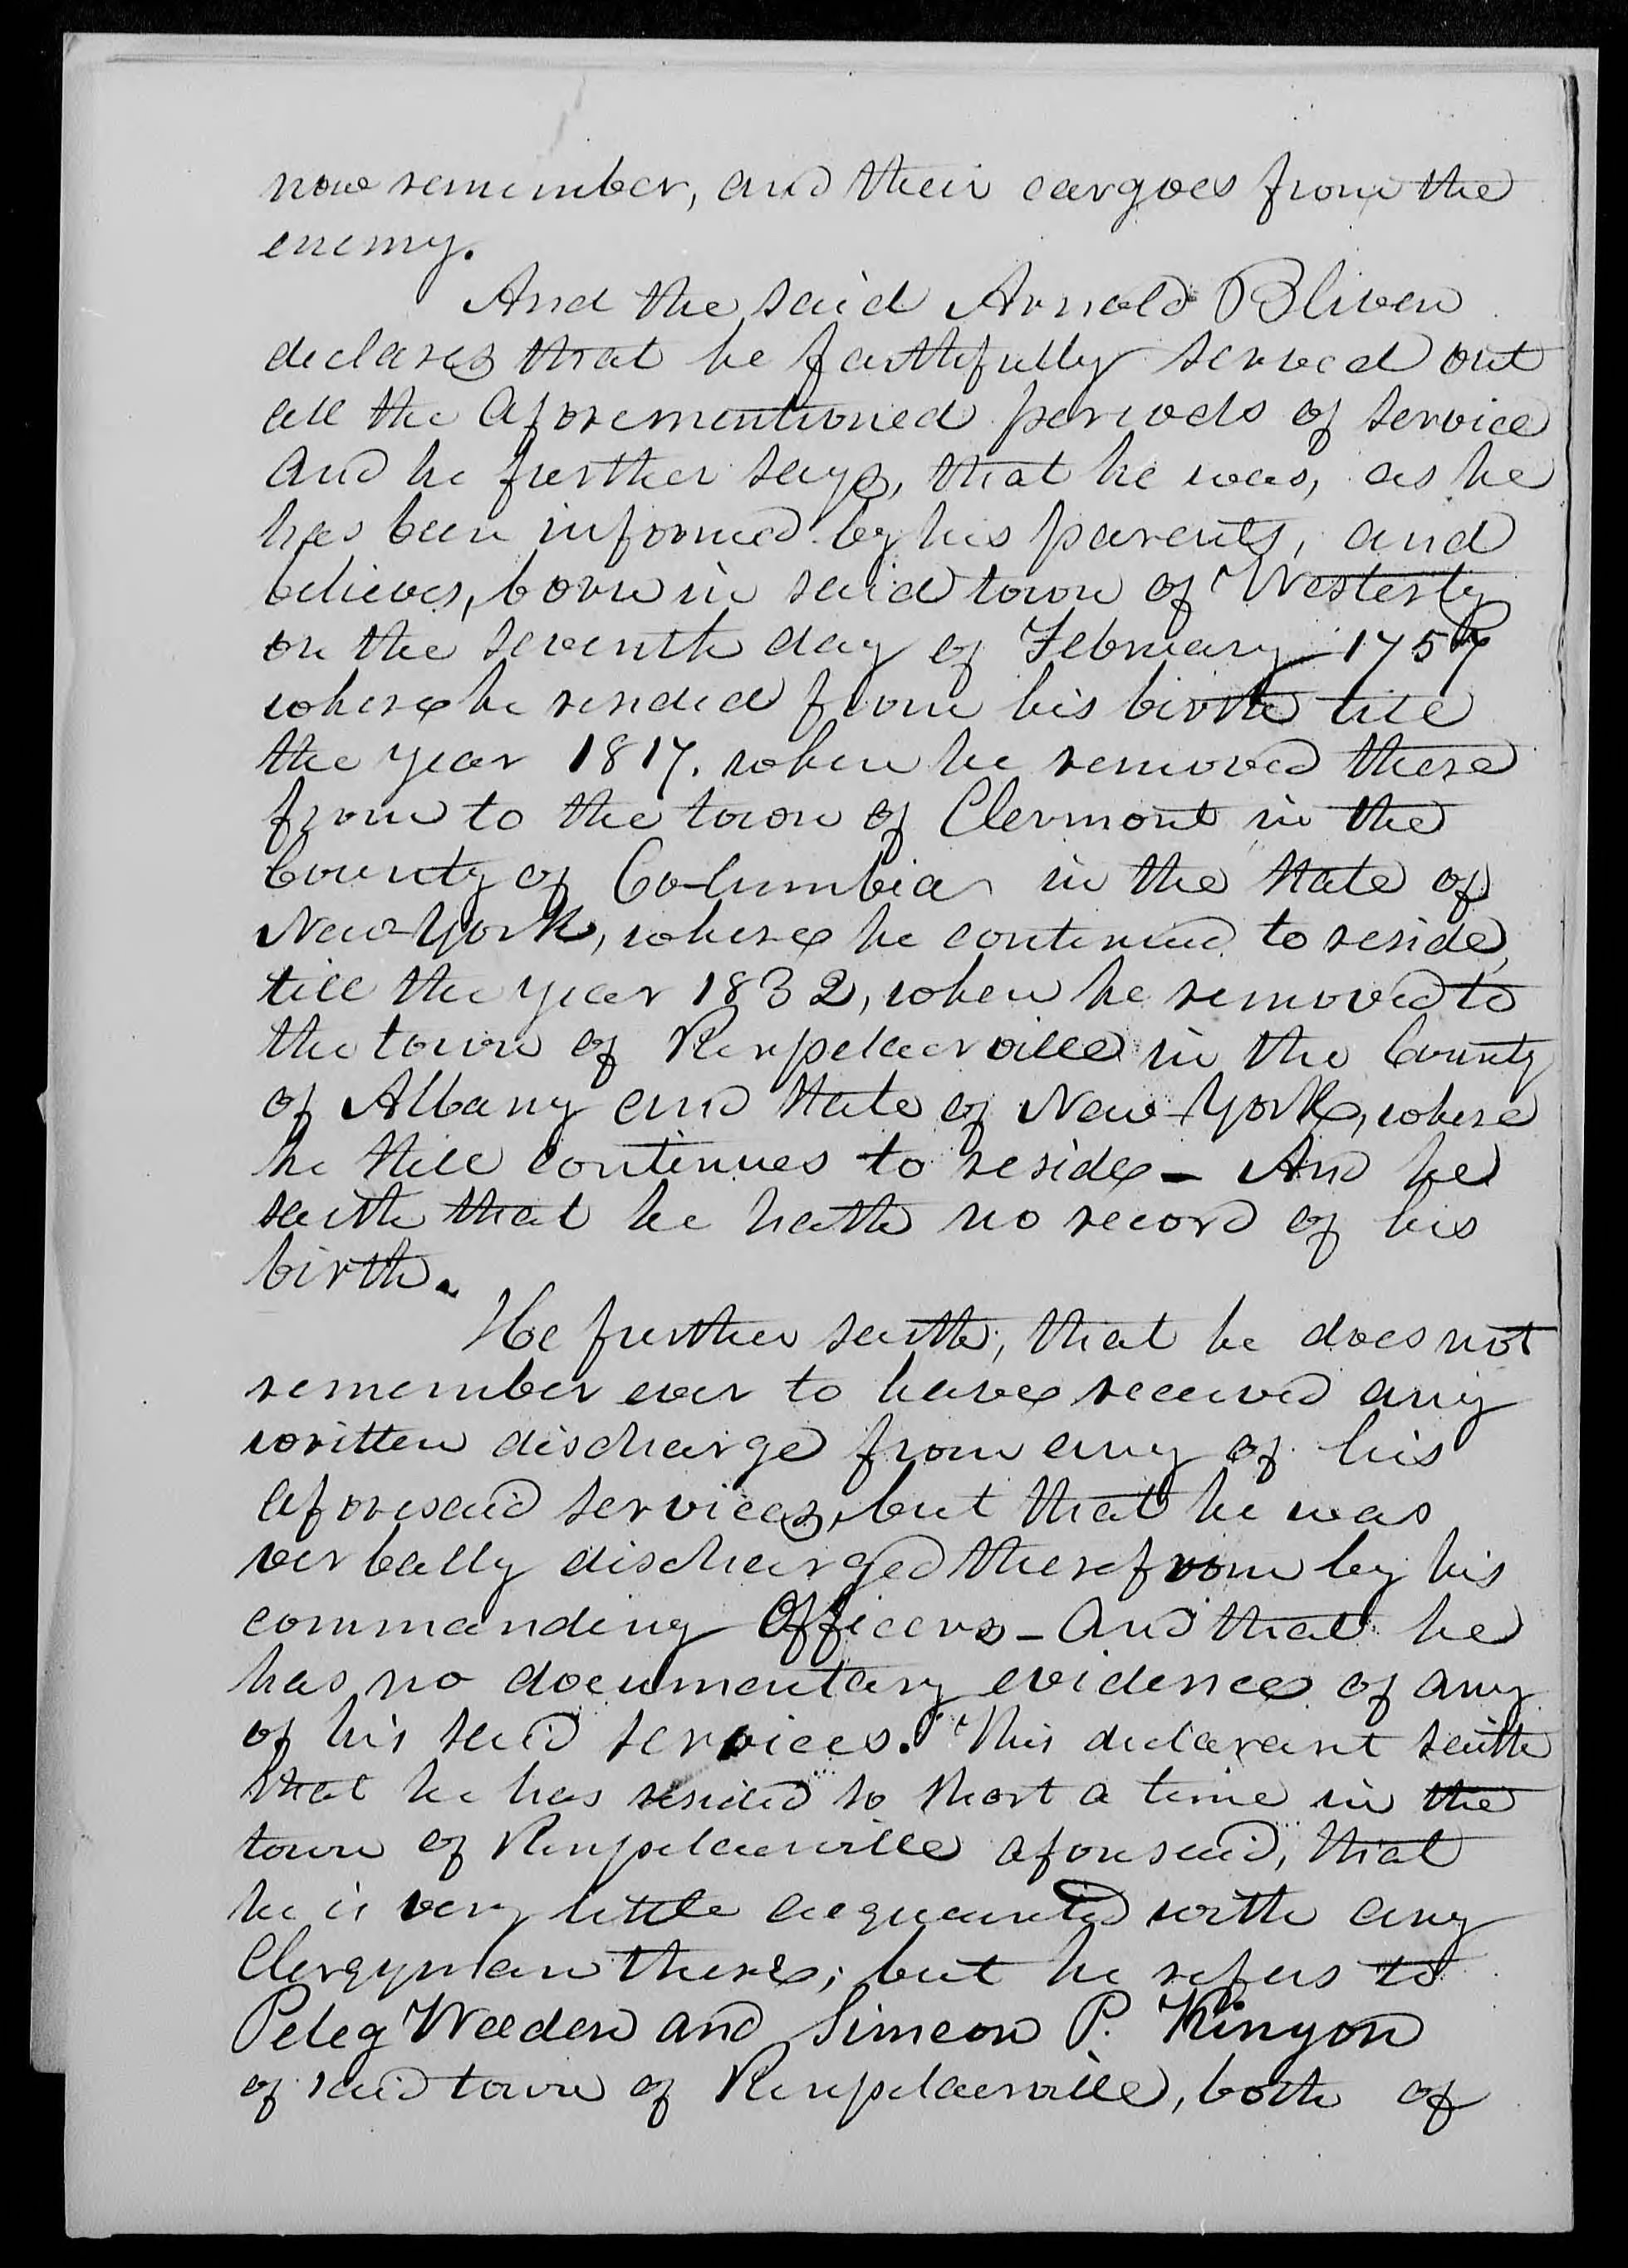 now remember, and their cargoes from the
enemy.
And the said Arnold Bliven
declares that he faithfully served out
all the aforementioned periods of service
and he further says, that he was, as he
has been informed by his parents, and
believes, born in said town of Westerly
on the seventh day of February 1757
where he resided from his birth till
the year 1817. when he removed there
from to the town of Clermont in the
County of Columbia in the State of
New-York, where he continued to reside,
till the year 1832, when he removed to
the town of Rensselaerville in the County
of Albany and State of New-York, where
he still continues to reside - And he
saith that he hath no record of his
birth.
He further saith, that he does not
remember ever to have received any
written discharge from any of his
aforesaid services, but that he was
verbally discharged therefrom by his
commanding Officers - and that he
has no documentary evidence of any
of his said services. This declarant saith
that he has resided so short a time in the
town of Rensselaerville aforesaid, that
he is very little acquainted with any
Clergyman there; but he refers to
Peleg Weeden and Simeon P. Kinyon
of said town of Rensselaerville, both of